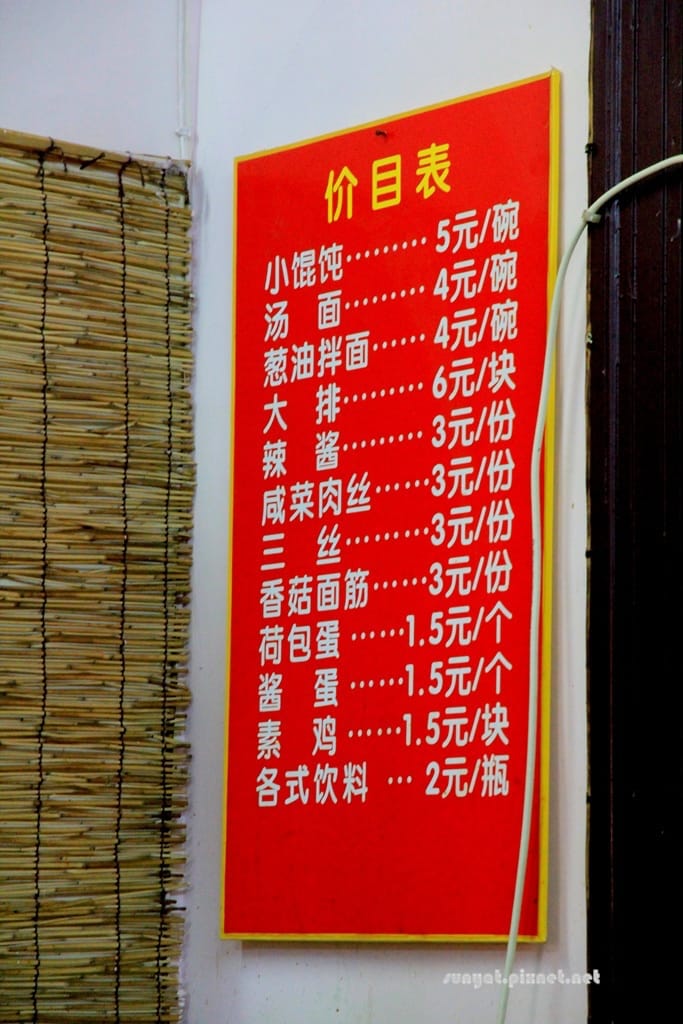 价目表
小馄饨········· 5元/碗
汤 面········· 4元/碗
葱油拌面······ 4元/碗
大 排········· 6元/块
辣 酱········· 3元/份
咸菜肉丝······3元/份
三 丝·········3元/份
香菇面筋······3元/份
荷包蛋 ······1.5元/个
酱 蛋 ······1.5元/个
素 鸡 ······1.5元/块
各式饮料 ··· 2元/瓶
sunyat.pixnet.net